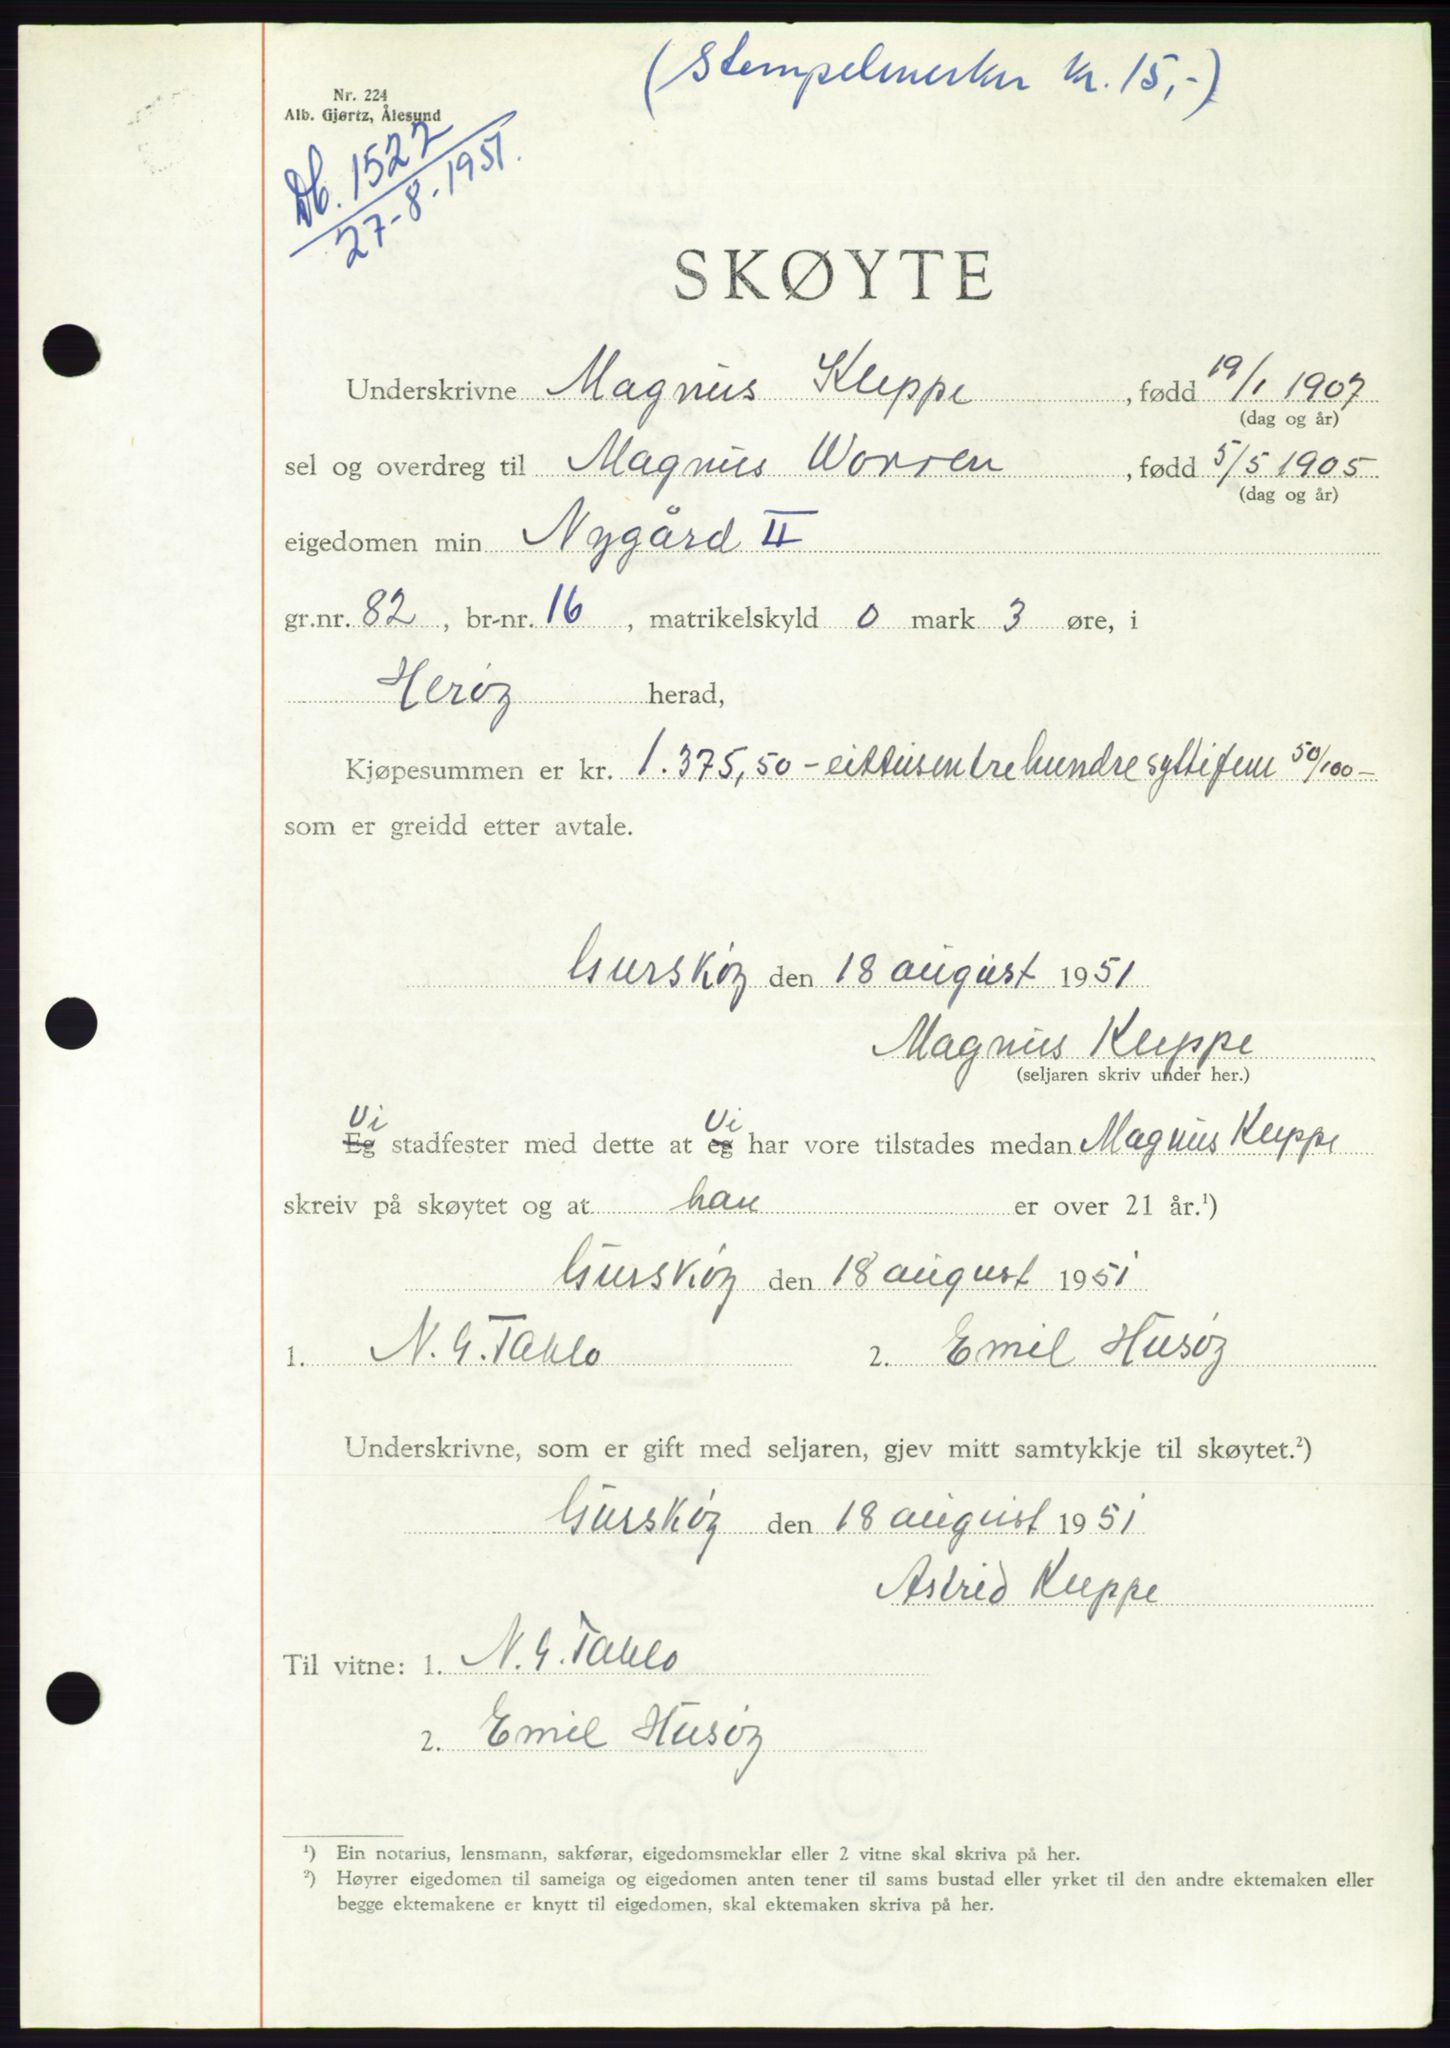 (Stempelmerker kr. 15,-)
Nr. 224
Alb. Gjørtz, Ålesund
Db. 1522
27-8-1951.
SKØYTE
Underskrivne Magnus Kleppe, fødd 19/1 1907
(dag og år)
sel og overdreg til Magnus Worren, fødd 5/5 1905
(dag og år)
eigedomen min Nygård II
gr.nr. 82, br-nr. 16, matrikelskyld 0 mark 3 øre, i
Herøy herad,
Kjøpesummen er kr. 1.375,50 - eittusentrehundresyttifem 50/100 -
som er greidd etter avtale.
Gurskøy den 18 august 1951
Magnus Kleppe
(seljaren skriv under her.)
Vi Vi
Eg stadfester med dette at eg har vore tilstades medan Magnus Kleppe
skreiv på skøytet og at han er over 21 år.¹)
Gurskøy den 18 august 1951
1. N. G. 2. Emil Husøy
Underskrivne, som er gift med seljaren, gjev mitt samtykkje til skøytet.²)
Gurskøy den 18 august 1951
Astrid Kleppe
Til vitne: 1. N. G.
2. Emil Husøy
¹) Ein notarius, lensmann, sakførar, eigedomsmeklar eller 2 vitne skal skriva på her.
²) Høyrer eigedomen til sameiga og eigedomen anten tener til sams bustad eller yrket til den andre ektemaken eller
begge ektemakene er knytt til eigedomen, skal ektemaken skriva på her.